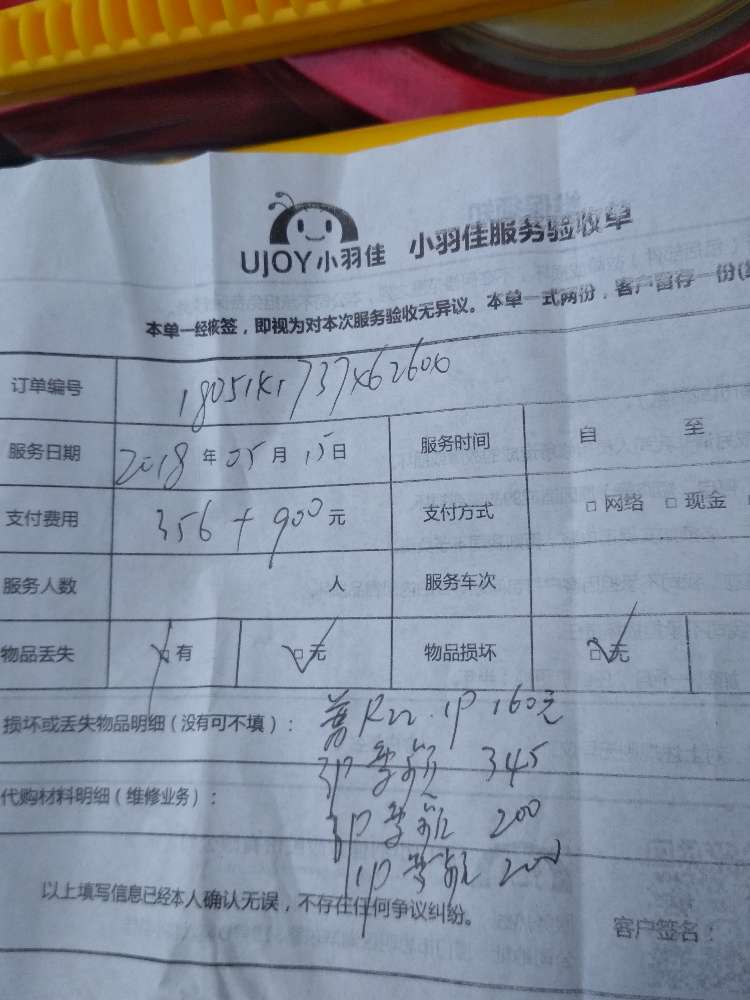 UJOY小羽佳 小羽佳服务验收单
本单一经核签，即视为对本次服务验收无异议。本单一式两份，客户留存一份
订单编号
服务日期 2018年05月15日 服务时间 自 至
支付费用 356+900元 支付方式 □网络 □现金
服务人数 人 服务车次
物品丢失 □有 □无 物品损坏 □无
损坏或丢失物品明细（没有可不填）： R22 1P 160元
3P 345
代购材料明细（维修业务）： 3P 200
1P 200
以上填写信息已经本人确认无误，不存在任何争议纠纷。
客户签名：